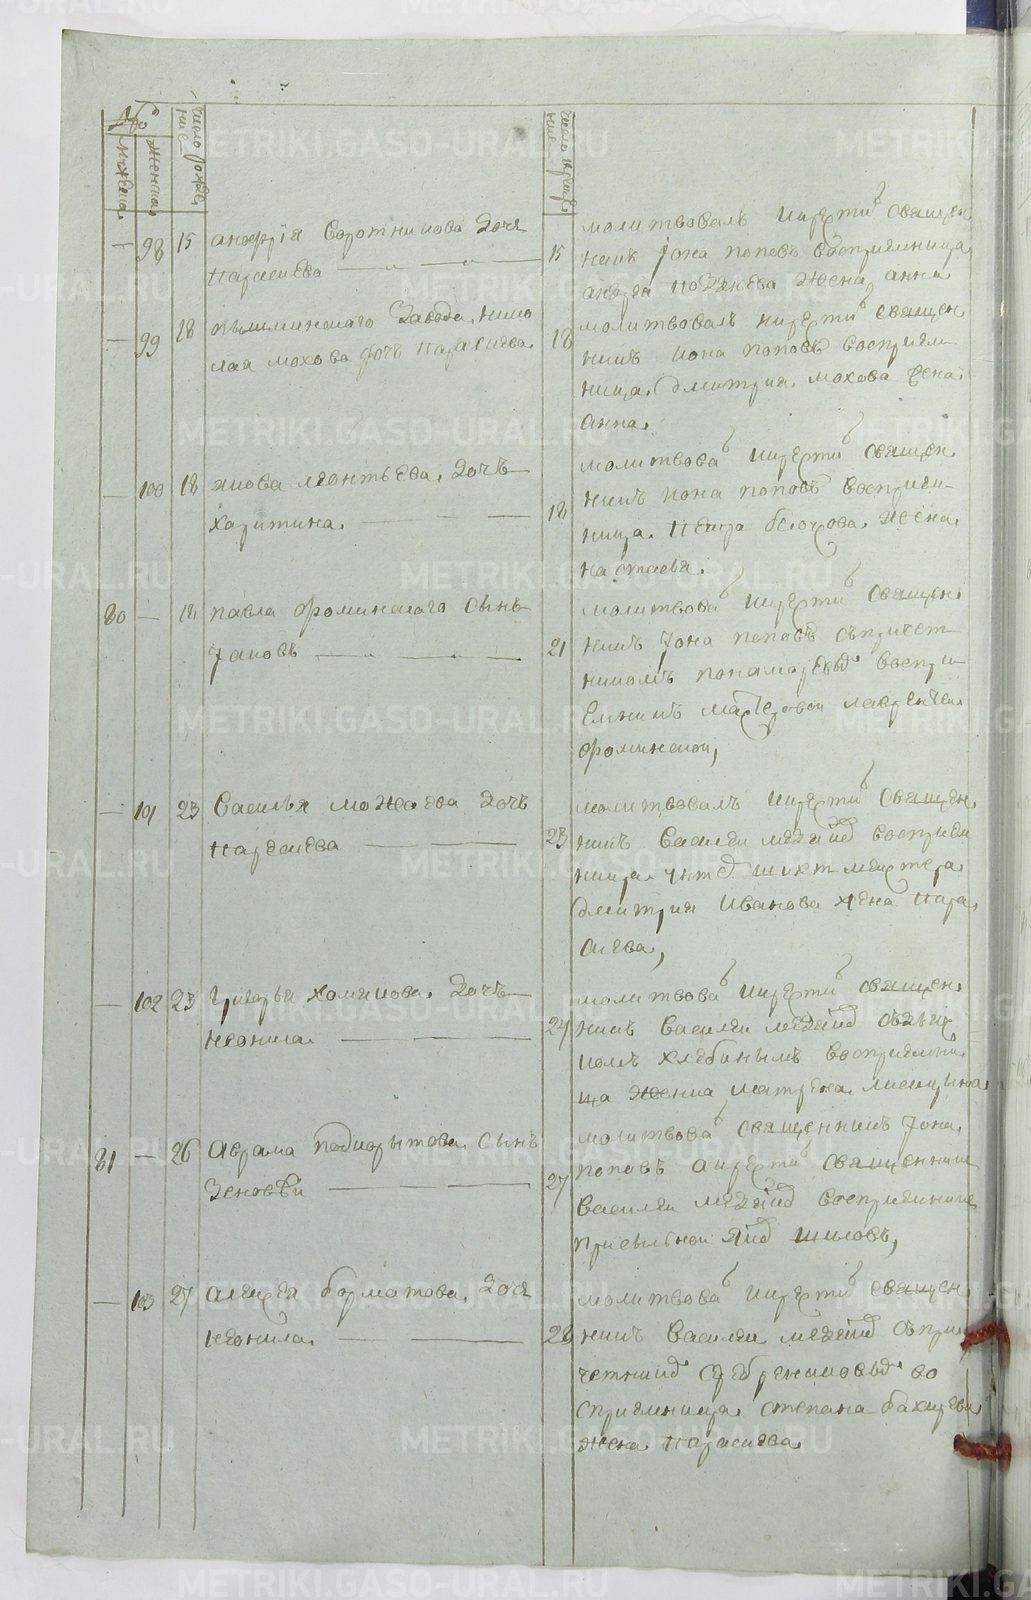 №
мужеска
женска
число рожде
ние
число креще
ние
— 98 15 андрѣя воротникова дочь
параскева
15 молитвовалъ и крестил священ
никъ Iона поповъ восприемница
андрея позднева жена анна
— 99 18 пышминскаго завода нико
лая мохова дочь параскева
18 молитвовалъ и крестил священ
никъ иона поповъ восприем
ница дмитрия мохова жена
анна
— 100 18 якова леонтьева дочъ
харитина
18 молитвовал и крестил священ
никъ иона поповъ восприем
ница петра жена
настасья
80 — 18 павла фоминскаго сынъ
Iаковъ
21 молитвовал и крестил священ
никъ Iона поповъ съ причет
никомъ пономаревым воспри
емникъ мастеровой лаврентеи
фоминской
— 101 23 василья дочь
параскева
23 молитвовалъ и крестил священ
никъ василеи восприем
ница шихтмейстера
дмитрия иванова жена пара
скева
— 102 23 григорья хомякова дочъ
неонила
24 молитвовал и крестил священ
никъ василеи съ дья
комъ хлебинымъ восприемни
ца женка матрена
81 — 26 аврама подкорытова сынъ
зеновѣи
27 молитвовал священникъ Iона
поповъ а крестил священник
василеи восприемник
шиловъ
— 103 27 дочь
неонила
28 молитвовал и крестил священ
никъ василеи съ при
четником серебрениковым во
сприемница степана
жена параскева
METRIKI.GASO-URAL.RU